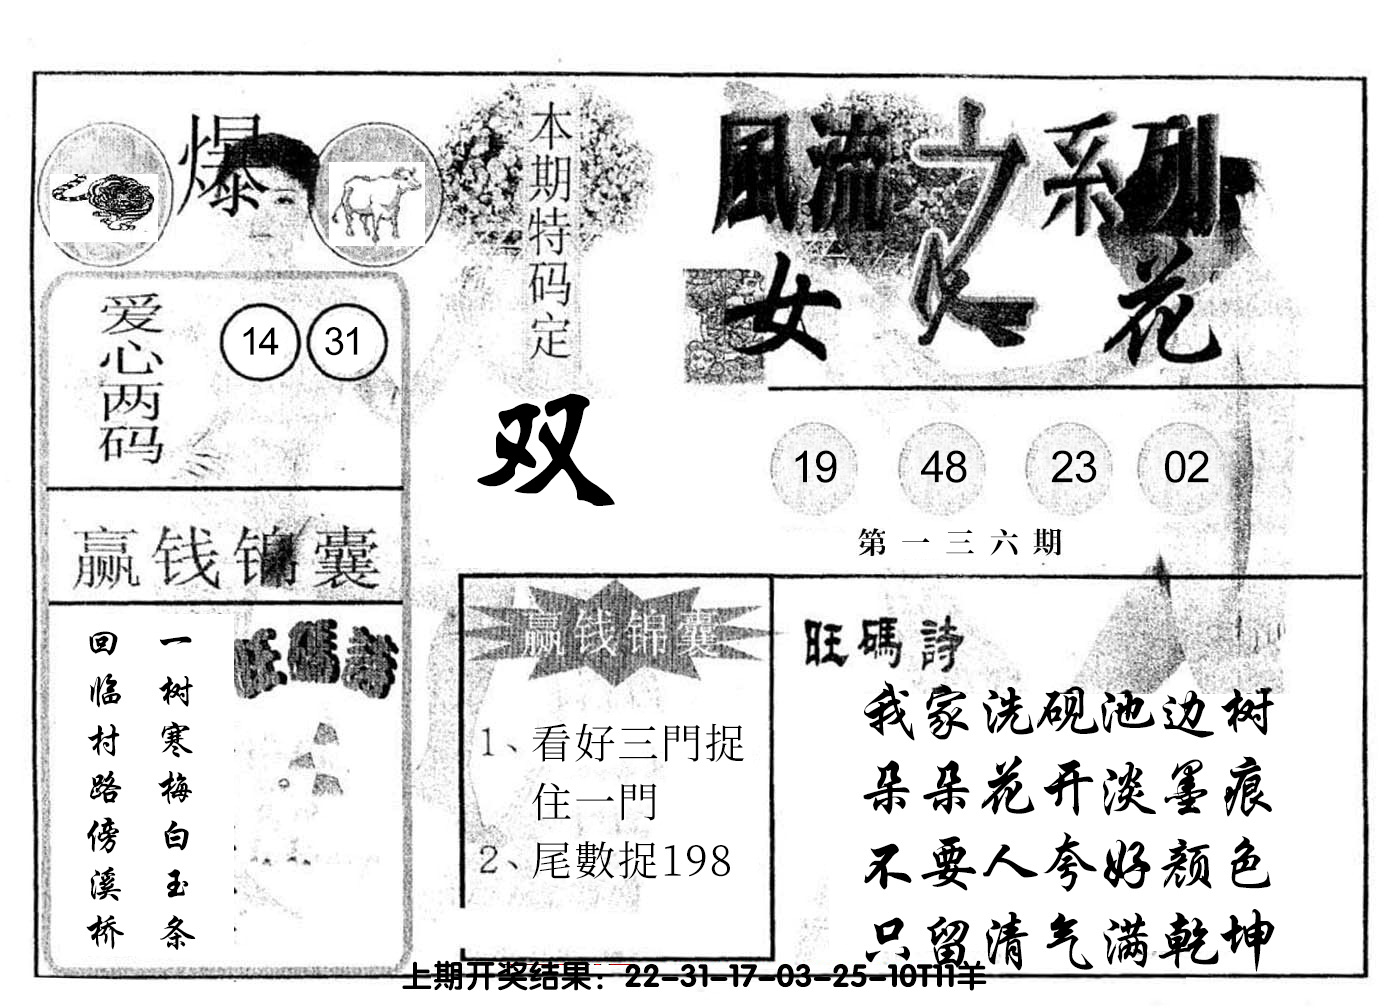 爆
本期特码定
双
風流之系列
女人花
爱心两码
14 31
19 48 23 02
第一三六期
赢钱锦囊
旺碼詩
一树寒梅白玉条
回临村路傍溪桥
赢钱锦囊
1、看好三門捉
住一門
2、尾數捉198
旺碼詩
我家洗砚池边树
朵朵花开淡墨痕
不要人夸好颜色
只留清气满乾坤
上期开奖结果：22-31-17-03-25-10T11羊